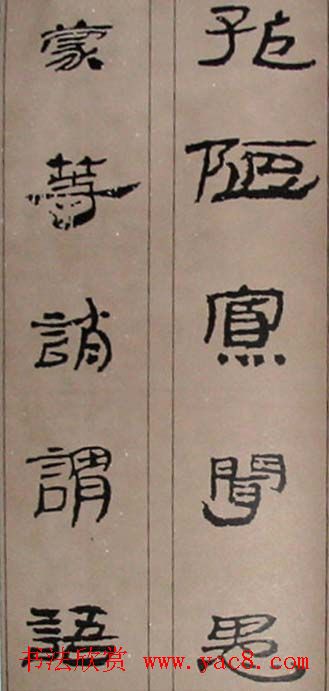 孤陋寡聞愚
蒙等誚謂語
书法欣赏 www.yac8.com